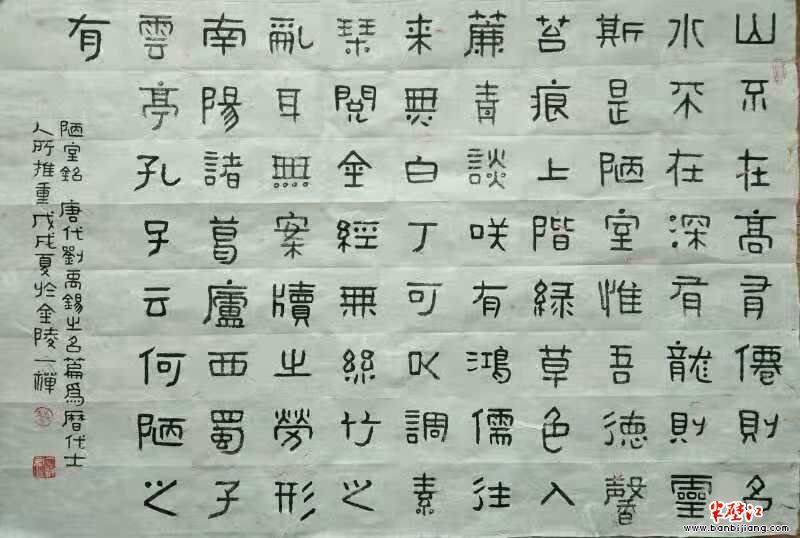 山不在高有僊則名
水不在深有龍則靈
斯是陋室惟吾德馨
苔痕上階緑草色入
簾青談咲有鴻儒往
来無白丁可以調素
琴閲金經無絲竹之
亂耳無案牘之勞形
南陽諸葛廬西蜀子
雲亭孔子云何陋之
有
陋室銘 唐代劉禹錫之名篇爲曆代士
人所推重戊戌夏於金陵一禪
半壁江
www.banbijiang.com